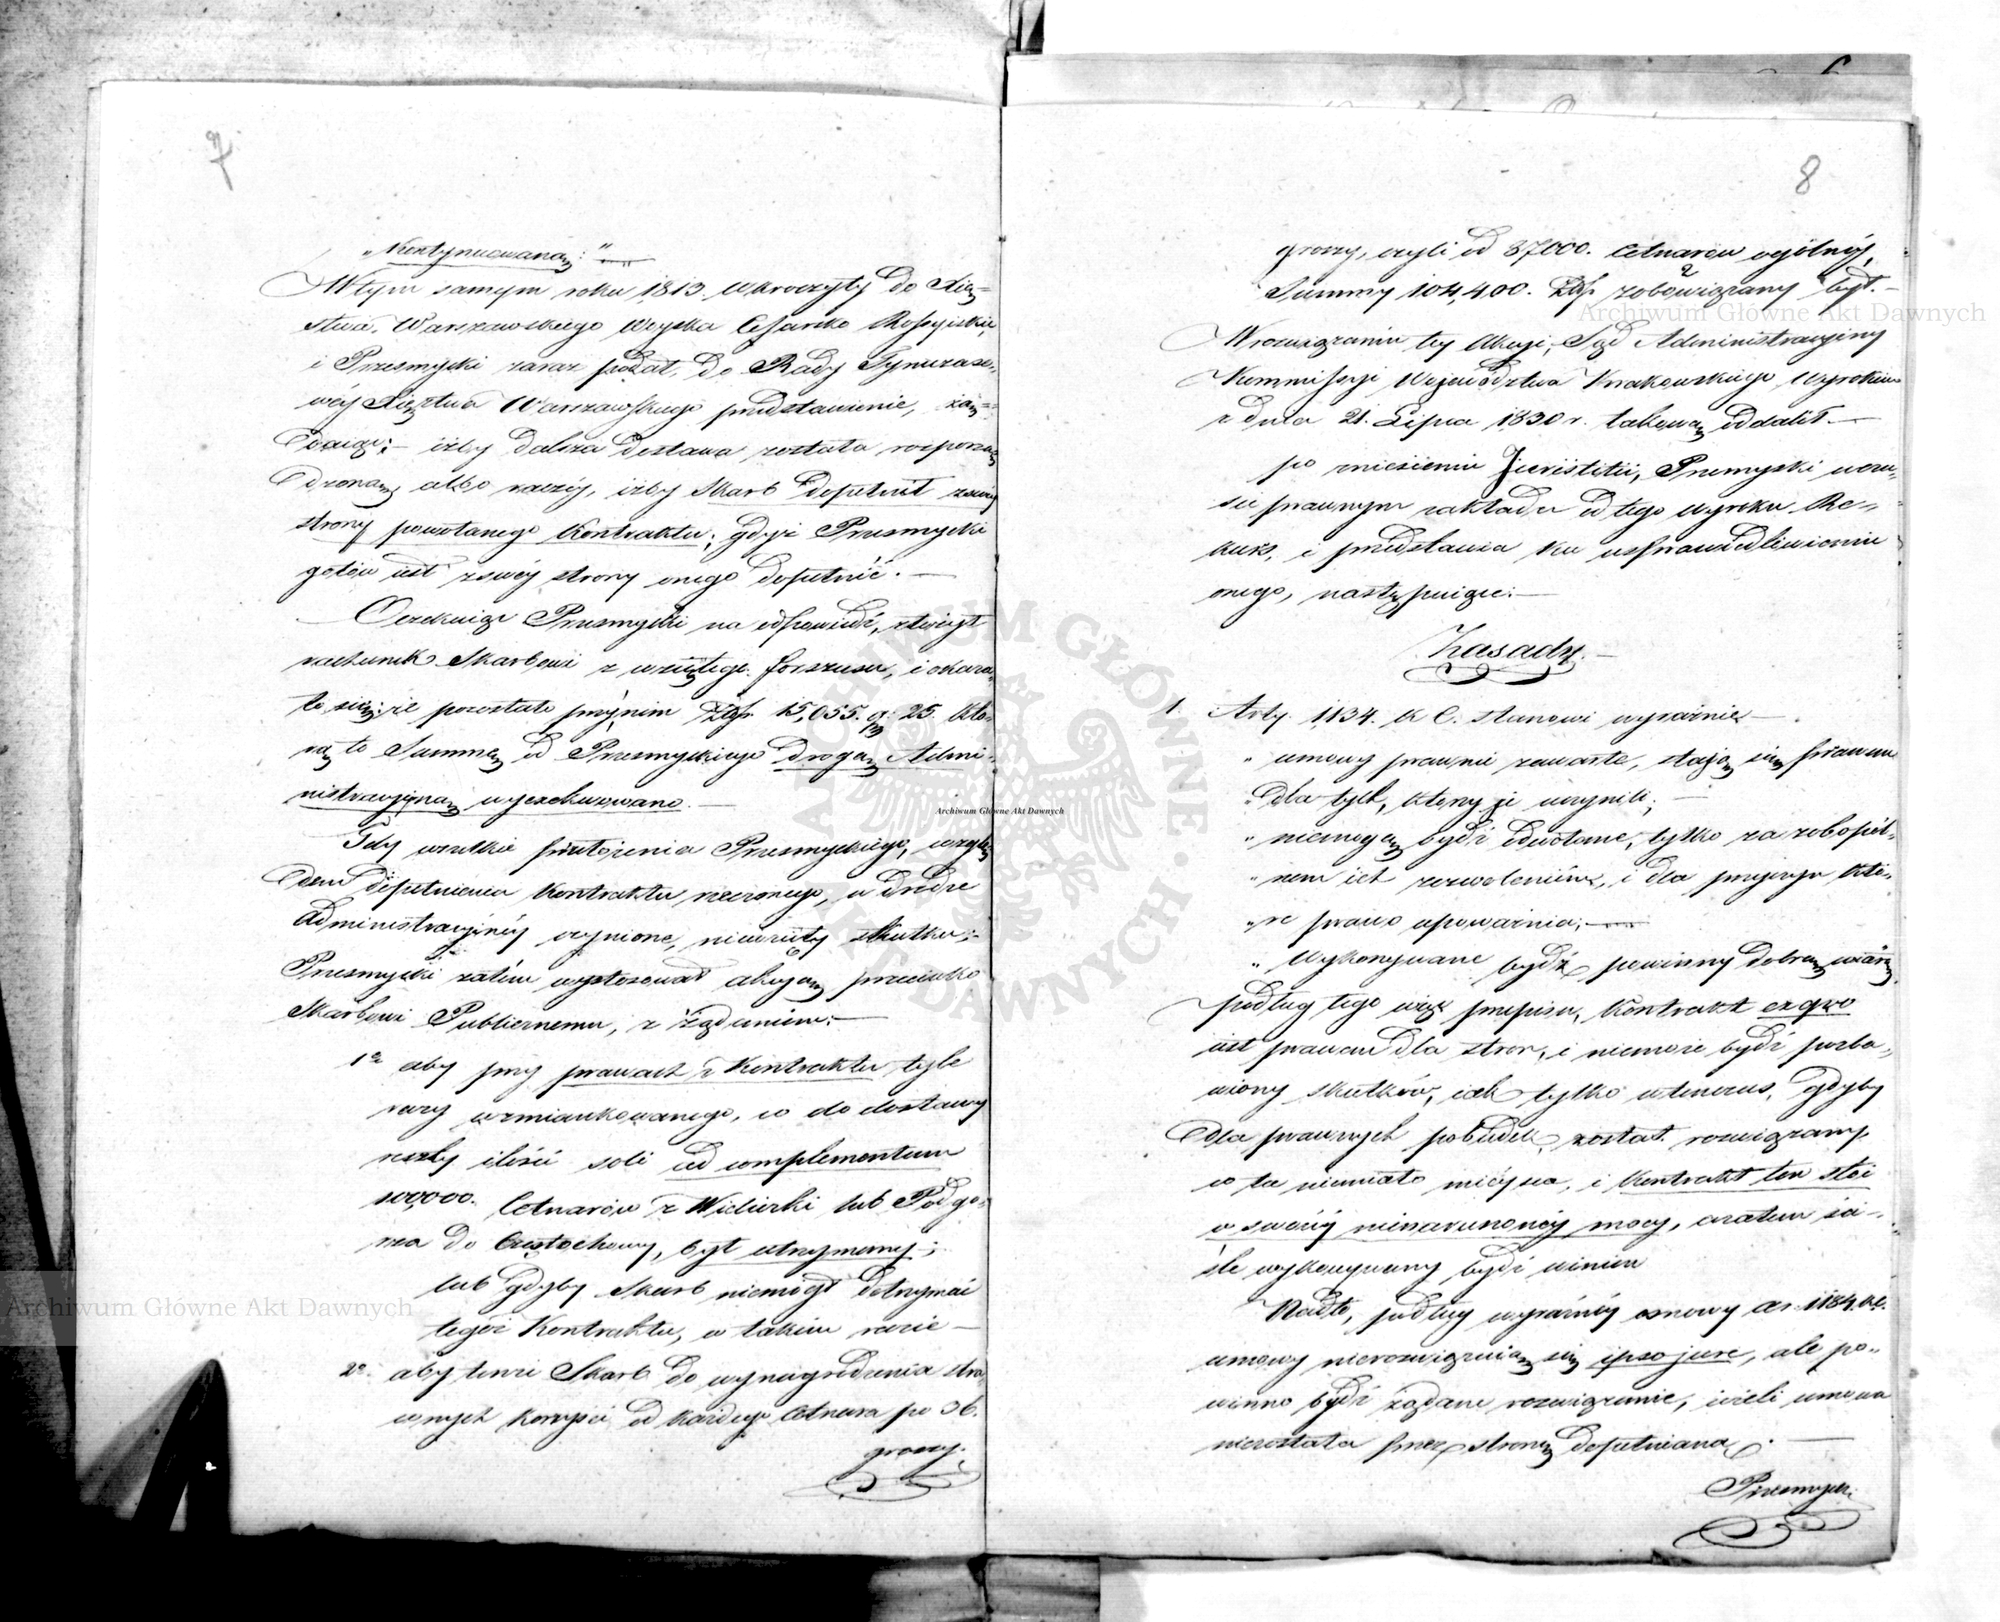 7
„Kontynuowaną:"
W tym samym roku 1813. wkroczyły do Xię=
stwa Warszawskiego Woyska Cesarsko Rossyiskie,
i Przesmycki zaraz podał do Rady Tymczaso=
wéy Xięstwa Warszawskiego przedstawienie, żą=
daiąc; iżby dalsza dostawa została rozporzą
dzoną albo raczéy, iżby Skarb dopełnił zswéy
strony powołanego Kontraktu; gdyż Przesmycki
gotów iest zswéy strony onego dopełnić.
Oczekuiąc Przesmycki na odpowiedź, złożył
rachunek Skarbowi z wziętego forszusu, i okaza=
ło się; że pozostało przy nim Złp. 15,055. gr 25. któ=
rą to Summę od Przesmyckiego drogą Admi=
nistracyiną wyexekwowano.
Gdy wszelkie przełożenia Przesmyckiego, wzglę
dem dopełnienia Kontraktu rzeczonego, w drodze
Administracyinéy czynione, niewzięły skutku;
Przesmycki zatém wystosował akcyą przeciwko
Skarbowi Publicznemu, z żądaniem:
1o aby przy prawach z Kontraktu tyle
razy wzmiankowanego, co do dostawy
reszty ilości soli ad complementum
100,000. Cetnarów z Wieliczki lub Podgó=
rza do Częstochowy, był utrzymany;
lub gdyby Skarb niemógł dotrzymać
tegóż Kontraktu, w takim razie
2o aby tenże Skarb do wynagrodzenia stra=
conych korzyści od każdego Cetnara po 36.
groszy.
8
groszy, czyli od 87000. Cetnarów ogólnéy,
Summy 104,400. Złp. zobowiązany był.
W rozwiązaniu tey Akcyi, Sąd Administracyiny
Kommissyi Województwa Krakowskiego, Wyrokiem
z dnia 21. Lipca 1830 r. takową oddalił.
po zniesieniu Juristitii, Przesmycki w cza=
sie prawnym zakłada od tego wyroku Re=
kurs, i przedstawia ku usprawiedliwieniu
onego, następuiące:
Zasady.
1. Arty. 1134. K C. stanowi wyraźnie
„ umowy prawnie zawarte, staią się prawem
„ dla tych, którzy je uczynili;
„ niemogą bydź odwołane, tylko za zobopól=
„ nem ich zezwoleniem, i dla przyczyn któ=
„ re prawo upoważnia;
„ Wykonywane bydź powinny dobrą wiarą.
podług tego więc przepisu, Kontrakt ex quo
iest prawem dla stron, i niemoże bydź pozba=
wiony skutków, iak tylko wtenczas, gdyby
dla prawnych pobudek, został rozwiązany,
co tu niemiało mieysca, i Kontrakt ten stoi
w swoiéy nienaruszonéy mocy, a zatem ści=
śle wykonywany bydź winien
Nadto, podług wyraźnéy osnowy ar. 1184. K.C.
umowy nierozwiązuią się ipso jure, ale po=
winno bydź żądane rozwiązanie, ieżeli umowa
niezostała przez stronę dopełnianą.
Przesmycki
Archiwum Główne Akt Dawnych
Archiwum Główne Akt Dawnych
Archiwum Główne Akt Dawnych
ARCHIWUM GŁÓWNE AKT DAWNYCH